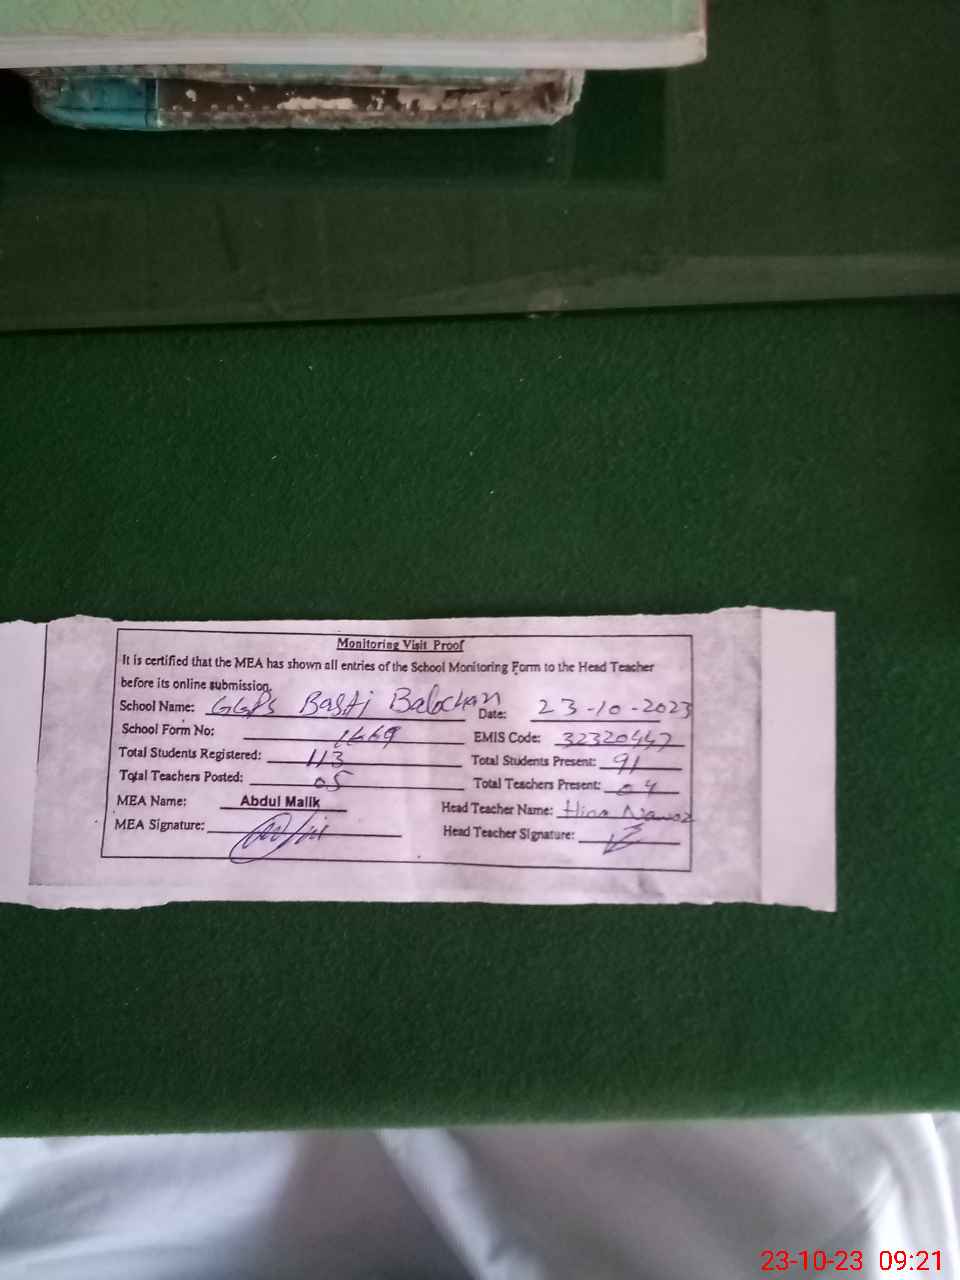 Monitoring Visit Proof
It is certified that the MEA has shown all entries of the School Monitoring Form to the Head Teacher
before its online submission.
School Name: GGPS Basti Balochan Date: 23-10-2023
School Form No: 1669 EMIS Code: 32320447
Total Students Registered: 113 Total Students Present: 91
Total Teachers Posted: 05 Total Teachers Present: 04
MEA Name: Abdul Malik Head Teacher Name: Nawaz
MEA Signature: Head Teacher Signature:
23-10-23 09:21